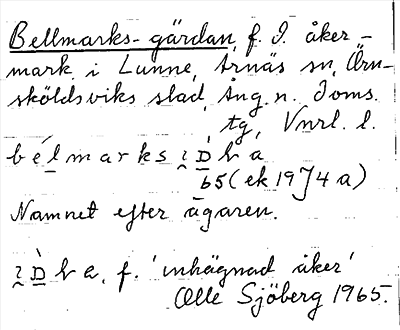 Bellmarks-gärdan, f. I. åker-
mark i Lunne, Arnäs sn, Örn-
sköldsviks stad, Ång. n. Toms.
tg, Vnrl. l.
bélmarks
65 (ek 19 J4 a)
Namnet efter ägaren.
f. 'inhägnad åker'
Olle Sjöberg 1965.